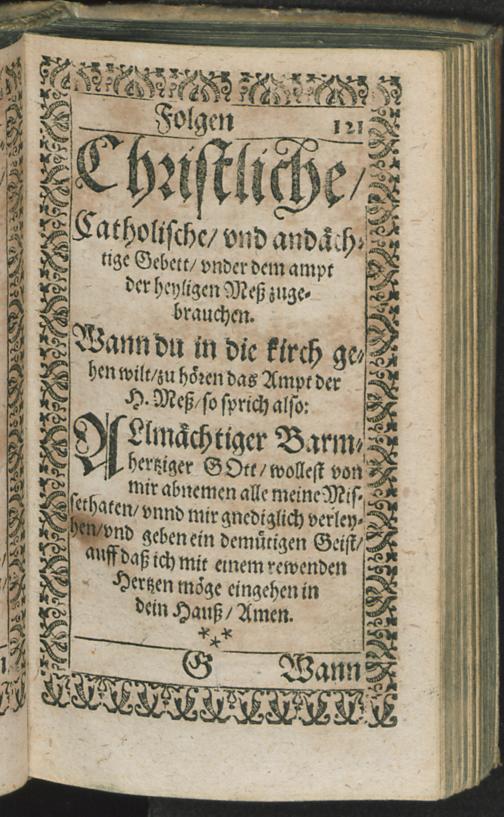 Folgen 121
Christliche/
Catholische/ vnd andäch-
tige Gebett/ vnder dem ampt
der heyligen Meß zuge-
brauchen.
Wann du in die kirch ge-
hen wilt/zu hören das Ampt der
H. Meß/ so sprich also:
ALlmächtiger Barm-
hertziger GOtt/ wollest von
mir abnemen alle meine Mis-
sethaten/ vnnd mir gnediglich verley-
hen/vnd geben ein demütigen Geist/
auff daß ich mit einem rewenden
Hertzen möge eingehen in
dein Hauß/ Amen.
***
G Wann